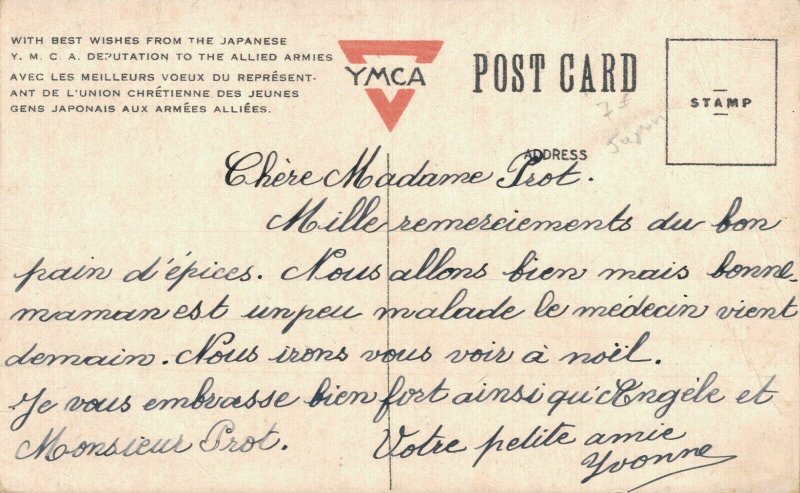 WITH BEST WISHES FROM THE JAPANESE
Y. M. C. A. DEPUTATION TO THE ALLIED ARMIES
AVEC LES MEILLEURS VOEUX DU REPRÉSENT-
ANT DE L'UNION CHRÉTIENNE DES JEUNES
GENS JAPONAIS AUX ARMÉES ALLIÉES.
YMCA
POST CARD
STAMP
Japon
ADDRESS
Chère Madame Prot.
Mille remerciements du bon
pain d'épices. Nous allons bien mais bonne-
maman est un peu malade le médecin vient
demain. Nous irons vous voir à noël.
Je vous embrasse bien fort ainsi qu'Angèle et
Monsieur Prot. Votre petite amie
Yvonne